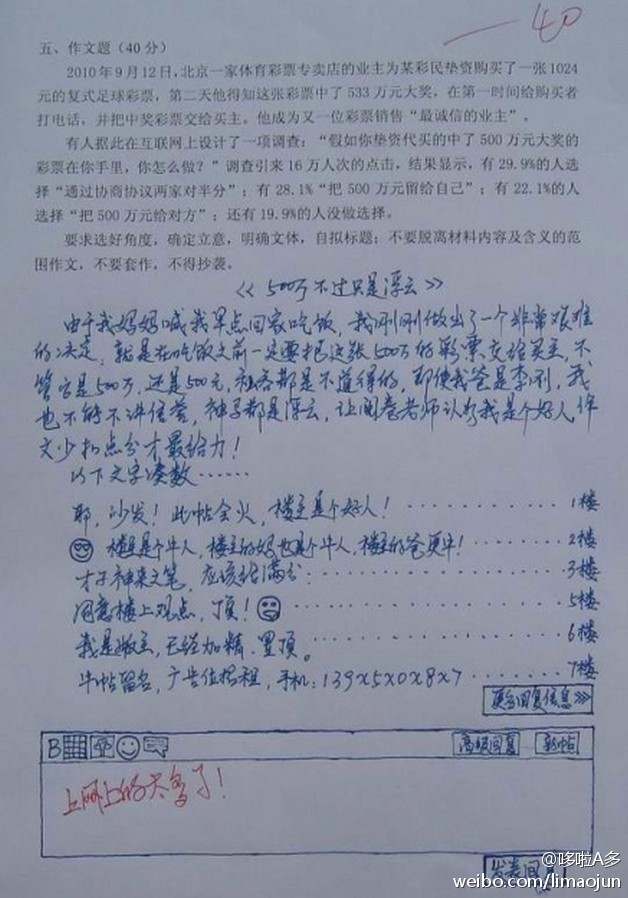 -40
五、作文题（40 分）
2010 年 9 月 12 日，北京一家体育彩票专卖店的业主为某彩民垫资购买了一张 1024
元的复式足球彩票，第二天他得知这张彩票中了 533 万元大奖，在第一时间给购买者
打电话，并把中奖彩票交给买主。他成为又一位彩票销售“最诚信的业主”。
有人据此在互联网上设计了一项调查：“假如你垫资代买的中了 500 万元大奖的
彩票在你手里，你怎么做？”调查引来 16 万人次的点击，结果显示，有 29.9%的人选
择“通过协商协议两家对半分”；有 28.1%“把 500 万元留给自己”；有 22.1%的人
选择“把 500 万元给对方”；还有 19.9%的人没做选择。
要求选好角度，确定立意，明确文体，自拟标题；不要脱离材料内容及含义的范
围作文，不要套作，不得抄袭。
《500万不过只是浮云》
由于我妈妈喊我早点回家吃饭，我刚刚做出了一个非常艰难
的决定，就是在吃饭之前一定要把这张500万的彩票交给买主，不
管它是500万，还是500元，独吞都是不道德的，即使我爸是李刚，我
也不能不讲信誉，神马都是浮云，让阅卷老师认为我是个好人，作
文少扣点分才最给力！
以下文字凑数……
耶，沙发！此帖会火，楼主是个好人！………………1楼
楼主是个牛人，楼主的妈也是个牛人，楼主的爸更牛！………2楼
才子神来之笔，应该给满分：………………3楼
同意楼上观点，顶！………………5楼
我是版主，已经加精、置顶。………………6楼
牛帖留名，广告位招租，手机：139x5x0x8x7………7楼
更多回复信息>>
B 高级回复 新帖
上网上的太多了！
发表回复
@哆啦A多
weibo.com/limaojun